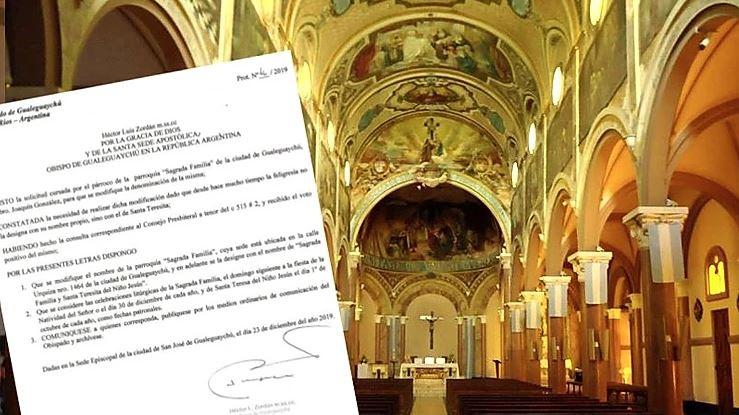 Prot. Nº 16 / 2019
do de Gualeguaychú
Ríos – Argentina
Héctor Luis Zordán m.ss.cc
POR LA GRACIA DE DIOS
Y DE LA SANTA SEDE APOSTÓLICA,
OBISPO DE GUALEGUAYCHÚ EN LA REPÚBLICA ARGENTINA
ISTO la solicitud cursada por el párroco de la parroquia “Sagrada Familia” de la ciudad de Gualeguaychú,
bro. Joaquín González, para que se modifique la denominación de la misma;
CONSTATADA la necesidad de realizar dicha modificación dado que desde hace mucho tiempo la feligresía no
la designa con su nombre propio, sino con el de Santa Teresita;
HABIENDO hecho la consulta correspondiente al Consejo Presbiteral a tenor del c 515 # 2, y recibido el voto
positivo del mismo;
POR LAS PRESENTES LETRAS DISPONGO
1. Que se modifique el nombre de la parroquia “Sagrada Familia”, cuya sede está ubicada en la calle
Urquiza nro. 1464 de la ciudad de Gualeguaychú, y en adelante se la designe con el nombre de “Sagrada
Familia y Santa Teresita del Niño Jesús”.
2. Que se considere las celebraciones litúrgicas de la Sagrada Familia, el domingo siguiente a la fiesta de la
Natividad del Señor o el día 30 de diciembre de cada año, y de Santa Teresa del Niño Jesús el día 1° de
octubre de cada año, como fechas patronales.
3. COMUNÍQUESE a quienes corresponda, publíquese por los medios ordinarios de comunicación del
Obispado y archívese.
Dadas en la Sede Episcopal de la ciudad de San José de Gualeguaychú, el día 23 de diciembre del año 2019.
Héctor L. Zordán m.ss.cc.